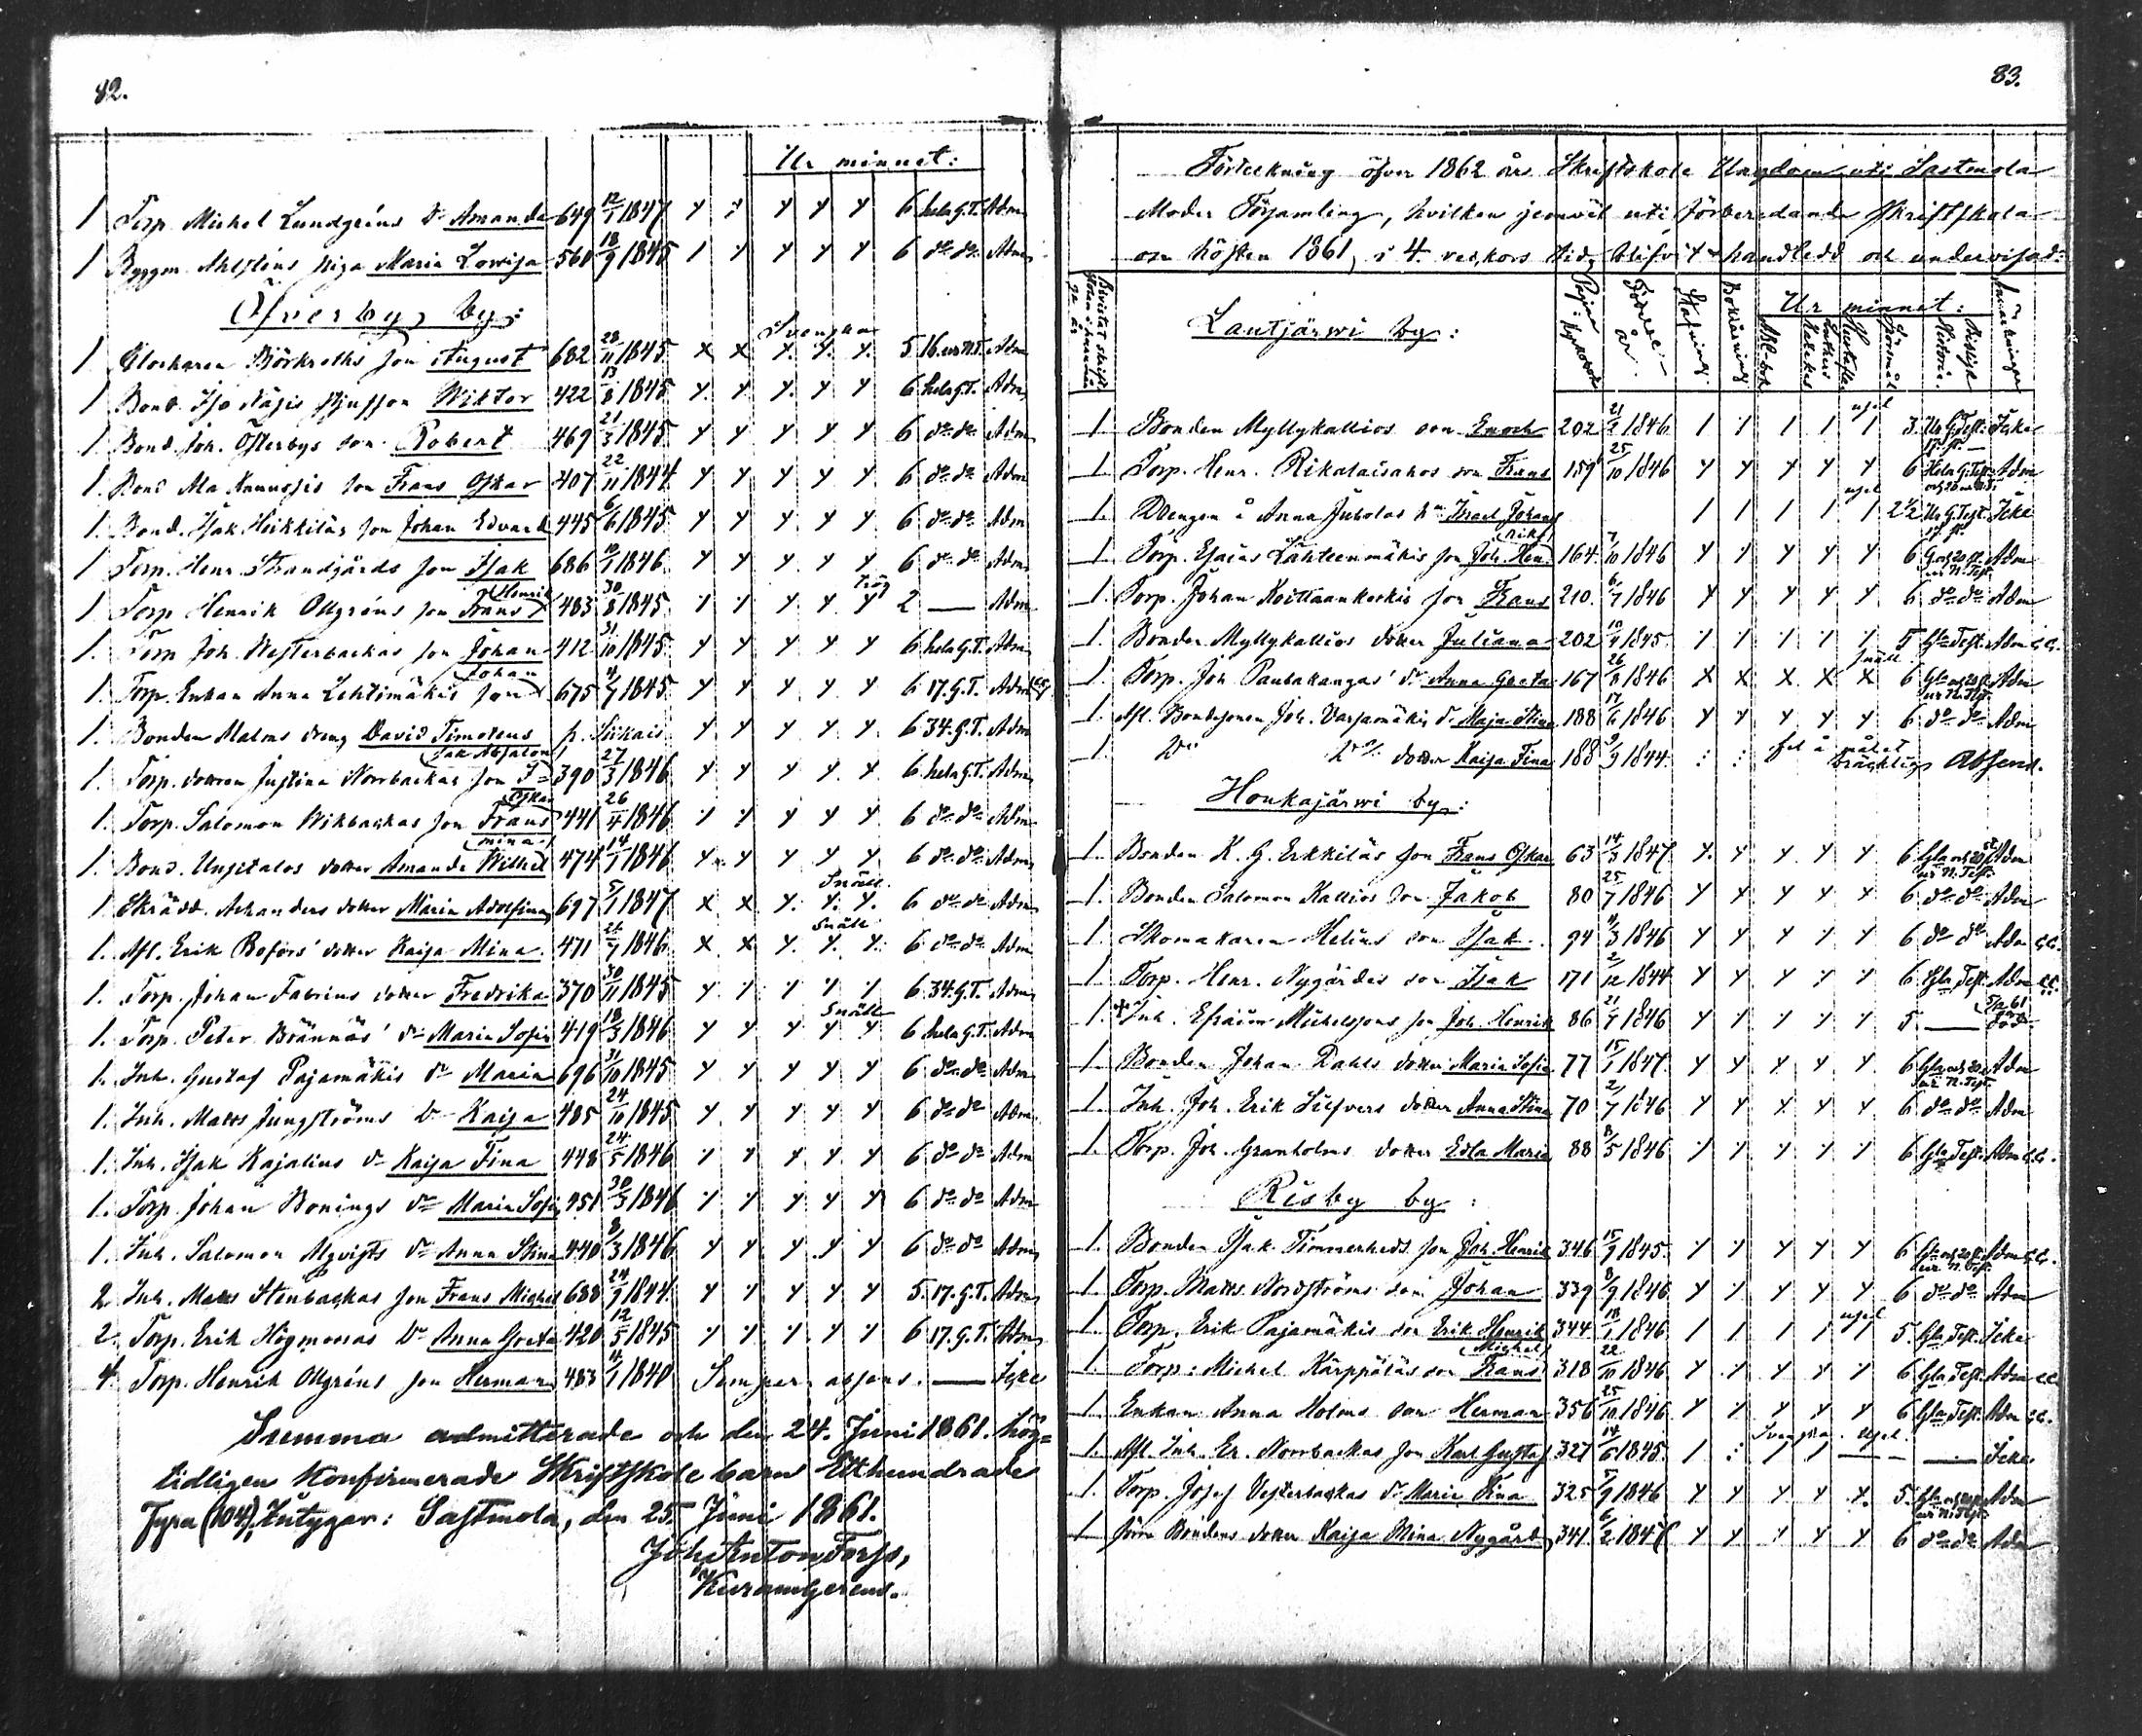 82.
Ur minnet:
1 Torp. Michel Lundgréns dr Amanda 649 12/1 1847 6 hela G.T. Adm
1 Byggm. Ahlstens piga Maria Lovisa 560 18/9 1845 6 do do Adm
Öfverby by:
Svenska
1 Klockaren Björkroths son August 682 28/11 1845 5 16. ur N.T. Adm
1 Bond. Wiktor 422 13/8 1845 6 hela G.T. Adm
1 Bond. Joh. Österbys son Robert 469 21/3 1845 6 do do Adm
1. Bond Ala Knuussis son Frans Oskar 407 22/11 1844 6 do do Adm
1. Bond. Isak Heikkiläs son Johan Edvard 445 6/6 1845 6 do do Adm
1 Torp. Henr. Strandgårds son Isak 686 10/1 1846 6 do do Adm
1 Torp Henrik Ollgréns son Frans Henrik 483 30/8 1845 trög 2 — Adm
1. Torp Joh. Westerbackas son Johan 412 31/10 1845 6 hela G.T. Adm
1. Torp. Enkan Anna Lehtimäkis son Johan 675 4/7 1845 6 17. G.T. Adm
1. Bonden Malms dreng David Timoteus p. Siikais 6 34. G.T. Adm
1. Torp. dottren Justina Norrbackas son Isak Absalon 390 27/3 1846 6 hela G.T. Adm
1. Torp. Salomon Wikbackas son Frans Oskar 441 26/4 1846 6 do do Adm
1. Bond. Ungitalos dotter Amanda Wilhelmina 474 14/1 1846 6 do do Adm
1 Skrädd. Achanders dotter Maria Adolfina 697 5/1 1847 Snäll 6 do do Adm
1. Afl. Erik Bofors' dotter Kaija Mina 471 21/7 1846 Snäll 6 do do Adm
1. Torp. Johan Fabrins dotter Fredrika 370 30/11 1845 6 34. G.T. Adm
1. Torp. Peter Brännäs' dr Maria Sofia 419 18/3 1846 Snäll 6 hela G.T. Adm
1. Inh. Gustaf Pajamäkis dr Maria 696 31/10 1845 6 do do Adm
1. Inh. Matts Jungströms dr Kaija 485 24/10 1845 6 do do Adm
1. Inh. Isak Kajalius dr Kaija Fina 448 24/5 1846 6 do do Adm
1. Torp. Johan Bonings dr Maria Sofia 451 30/3 1846 6 do do Adm
1. Inh. Salomon Algvists dr Anna Stina 440 8/3 1846 6 do do Adm
2. Inh. Matts Stenbackas son Frans Michel 688 24/9 1844 5. 17. G.T. Adm
2. Torp. Erik Högmossas dr Anna Greta 420 12/5 1845 6 17. G.T. Adm
4. Torp. Henrik Ollgréns son Herman 483 11/1 1840 Semper absens. — Icke
Summa admitterade och den 24. Juni 1861. hög=
tidligen Konfirmerade Skriftskole barn Etthundrade
Fyra (104), Intygar: Sastmola, den 25. Juni 1861.
Joh. Anton Forss,
83.
Förteckning öfver 1862 års Skriftskole Ungdom uti Sastmola
Moder Församling, hvilken jemväl uti förberedande Skriftskola
om hösten 1861, i 4 veckors tid, blifvit handledd och undervisad:
Lautjärwi by:
Pagina i kyrkobok
Födelse-år.
Stafning.
Bokläsning
Ur minnet:
Abc-bok
Katekes
Hustafla
Spörsmål
Historie.
Anmärkningar
1. Bonden Myllykallios son Enoch 202 21/2 1846 usel 3. Ur G. Test. 17 st. Icke
1. Torp. Henr. Rikalaisahos son Frans 159 25/10 1846 6 Hela G. Test. och 20 ur N.T. Adm
1. Drengen å Anna Juholas hn Israel Johans usel 2 1/2 Ur G. Test. 17 st. Icke
1. Torp. Esaias Lähteenmäkis son Joh. Henrik 164. 7/10 1846 6 G. och 20 st. ur N. Test. Adm
1. Torp. Johan Koittaankoskis son Frans 210. 6/7 1846 6 do do Adm
1. Bonden Myllykallios dotter Juliana 202 10/4 1845. 5 Gla Test. Adm
1. Torp. Joh. Pantakangas' dr Anna Greta 167 26/8 1846 Snäll 6 Gla och 20 st. ur N. Test. Adm
1. Afl. Bondesonen Joh. Varpamäkis dr Maja Stina 188 17/6 1846 6 do do Adm
1. Do Do dotter Kaija Fina 188 9/9 1844. fel å målet bräcklig Absens.
Honkajärwi by:
1. Bonden K. G. Erkkiläs son Frans Oskar 63 14/3 1847 6 Gla och 20 st. ur N. Test. Adm
1. Bonden Salomon Kallios son Jakob 80 25/7 1846 6 do do Adm
1. Skomakaren Helins son Isak 94 11/3 1846 6 do do Adm
1. Torp. Henr. Nygårdes son Isak 171 2/12 1844 6 Gla Test. Adm
1. + Inh. Efraim Michelssons son Joh. Henrik 86 21/7 1846 5 — död
1. Bonden Johan Dahls dotter Maria Sofia 77 15/1 1847. 6 Gla och 20 st. ur N. Test. Adm
1. Inh. Joh. Erik Silfvers dotter Anna Stina 70 2/7 1846 6 do do Adm
1. Torp. Joh. Granholms dotter Edla Maria 88 8/5 1846 6 Gla Test. Adm
Risby by:
1. Bonden Isak Timmerheds son Joh. Henrik 346 15/9 1845. 6 Gla och 20 st. ur N. Test. Adm
1. Torp. Matts Nordströms son Johan 339 8/9 1846 6 do do Adm
1. Torp. Erik Pajamäkis son Erik Henrik 344 18/1 1846. usel 5. Gla Test. Icke
1. Torp: Michel Kärppäläs son Frans Michel 318 22/10 1846 6 Gla Test. Adm
1. Enkan Anna Holms son Herman 356 25/10 1846 6 Gla Test. Adm
1. Afl. Inh. Er. Norrbackas son Karl Gustaf 327 14/6 1845. Svenska. Usel. — Icke.
1. Torp. Josef Vesterbackas dr Maria Fina 325 5/9 1846 5. Adm
1 Bondens dotter Kaija Mina Nygård 341. 6/2 1847 6 do do Adm